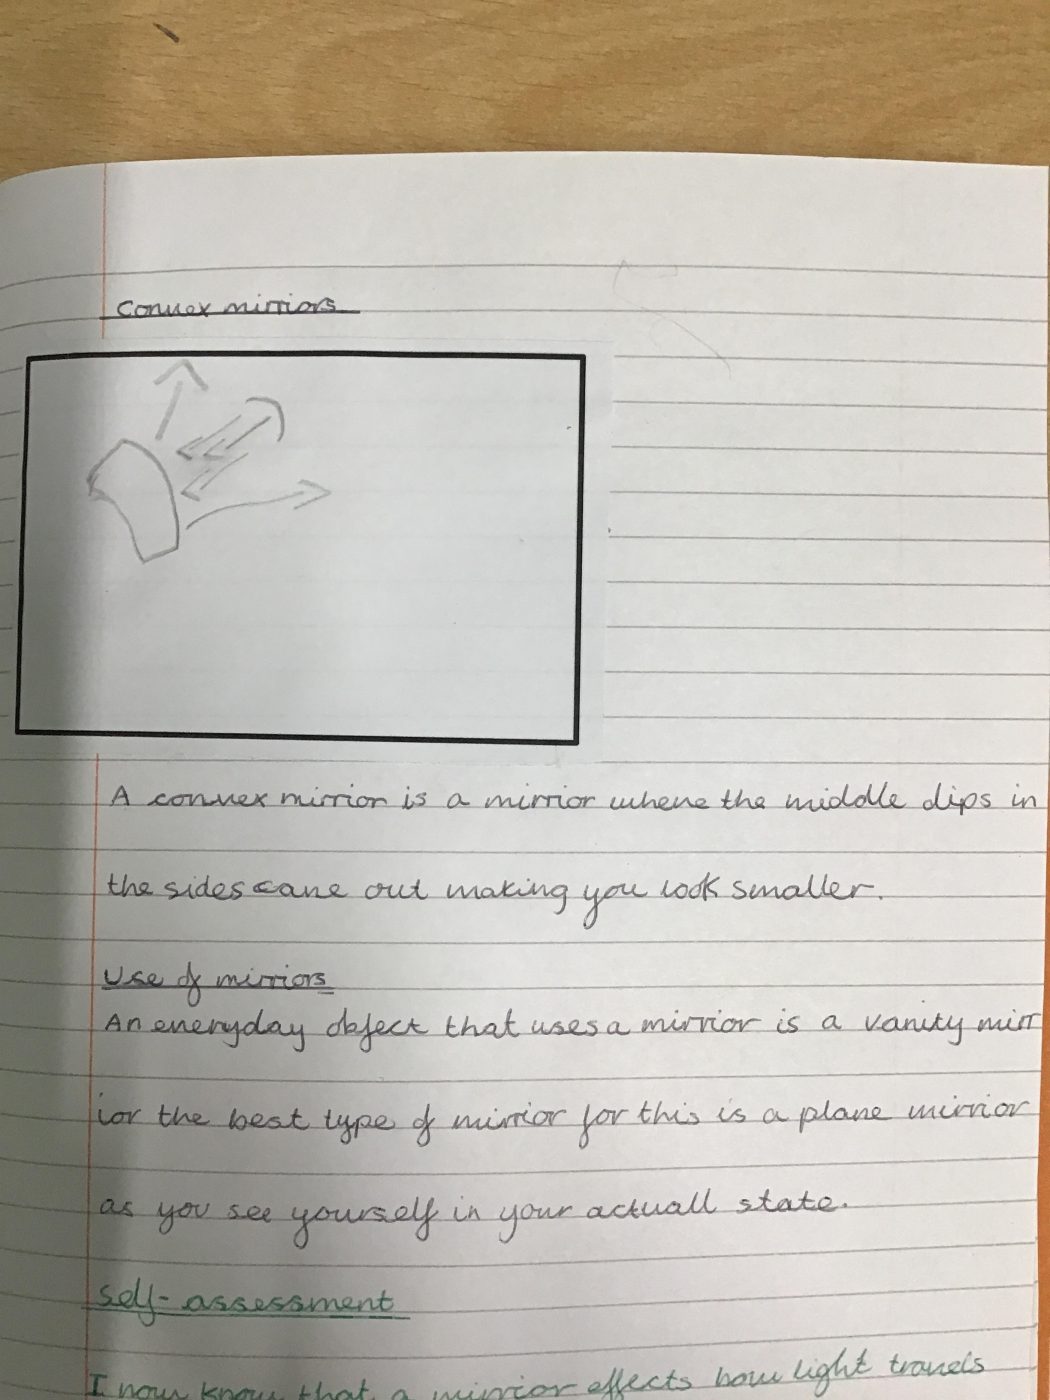 Convex mirriors
A convex mirrior is a mirrior where the middle dips in
the sides cane out making you look smaller.
Use of mirriors
An everyday object that uses a mirrior is a vanity mirr
ior the best type of mirrior for this is a plane mirrior
as you see yourself in your actuall state.
Self-assessment
I now know that a mirrior effects how light travels